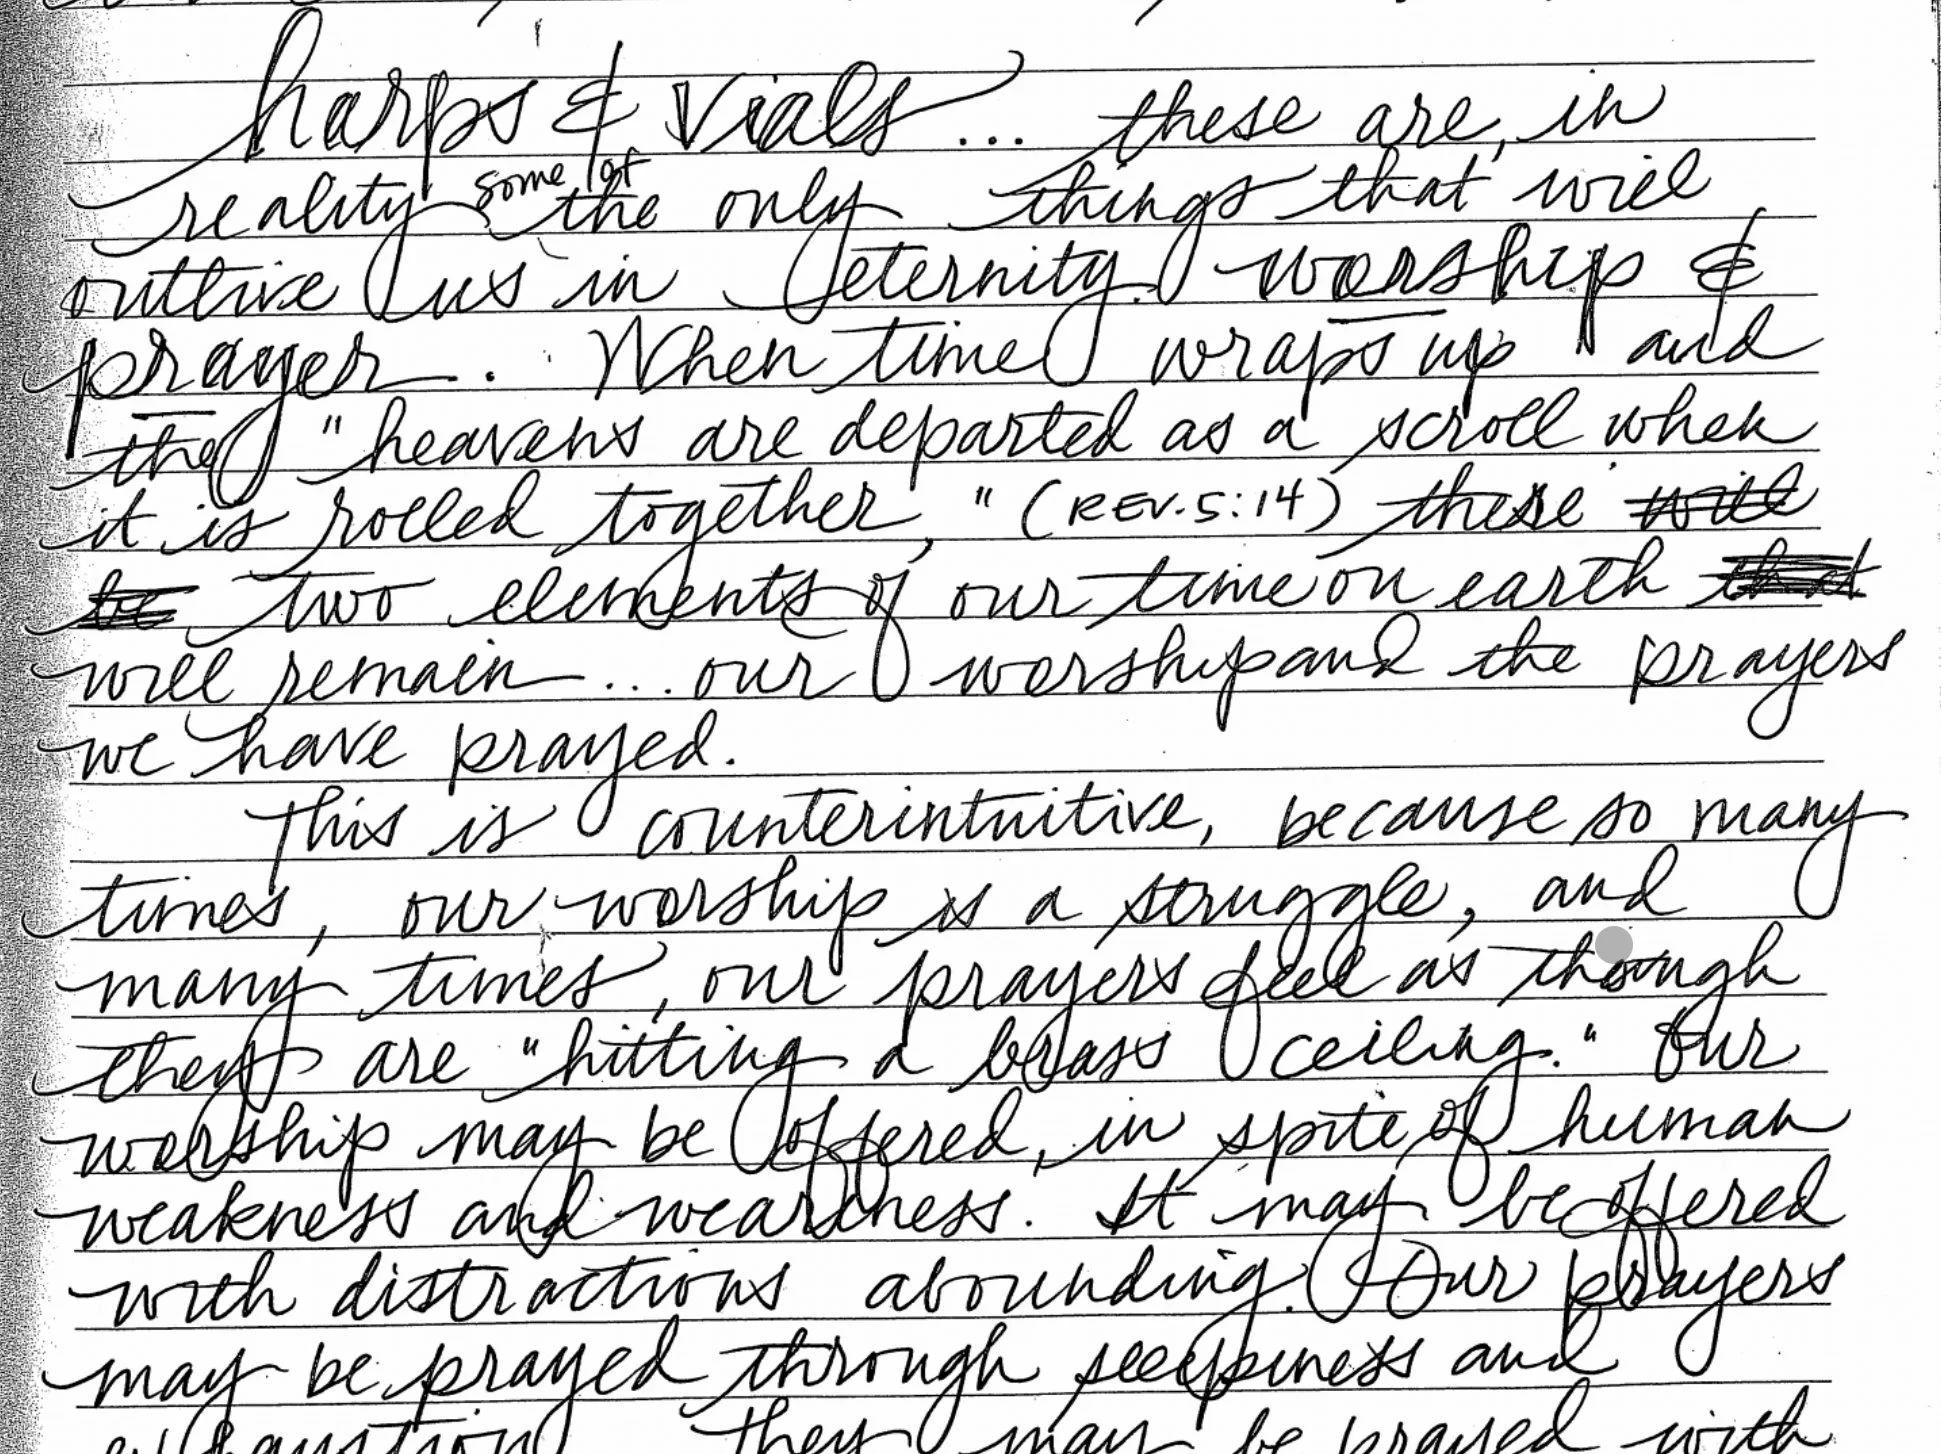 harps & vials... these are, in
reality some of the only things that will
outlive us in eternity. worship &
prayer. When time wraps up and
the "heavens are departed as a scroll when
it is rolled together," (REV. 5:14) these will
be two elements of our time on earth that
will remain... our worship and the prayers
we have prayed.
This is counterintuitive, because so many
times, our worship is a struggle, and
many times, our prayers feel as though
they are "hitting a brass ceiling." Our
worship may be offered, in spite of human
weakness and weariness. It may be offered
with distractions abounding. Our prayers
may be prayed through sleepiness and
exhaustion. They may be prayed with